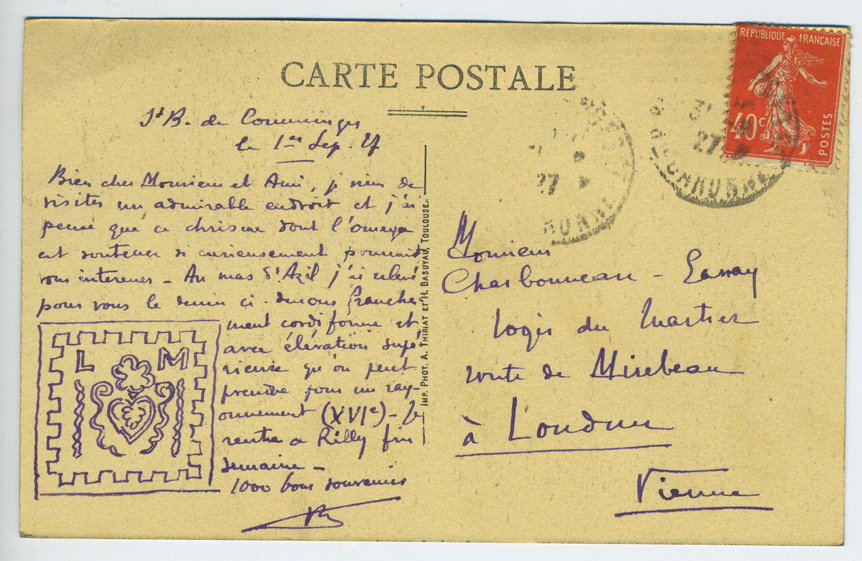 CARTE POSTALE
REPUBLIQUE FRANÇAISE
40c
POSTES
27
GARONNE
27
GARONNE
St B. de Comminges
le 1er Sep. 27
Bien cher Monsieur et Ami, je viens de
visiter un admirable endroit et j'ai
pensé que ce chrisme dont l'omega
est soutenu si curieusement pourrait
vous interesser - Au mas d'Azil j'ai relevé
pour vous le dessin ci-dessous franche
ment cordiforme et
avec élévation supé
rieure qu'on peut
prendre pour un ray-
onnement (XVIe) - Je
rentre a Rilly fin
semaine -
1000 bons souvenirs
L M
IMP. PHOT. A. THIRIAT ET H. BASUYAU, TOULOUSE.
Monsieur
Charbonneau - Lassay
logis du
route de Mirebeau
à Loudun
Vienne